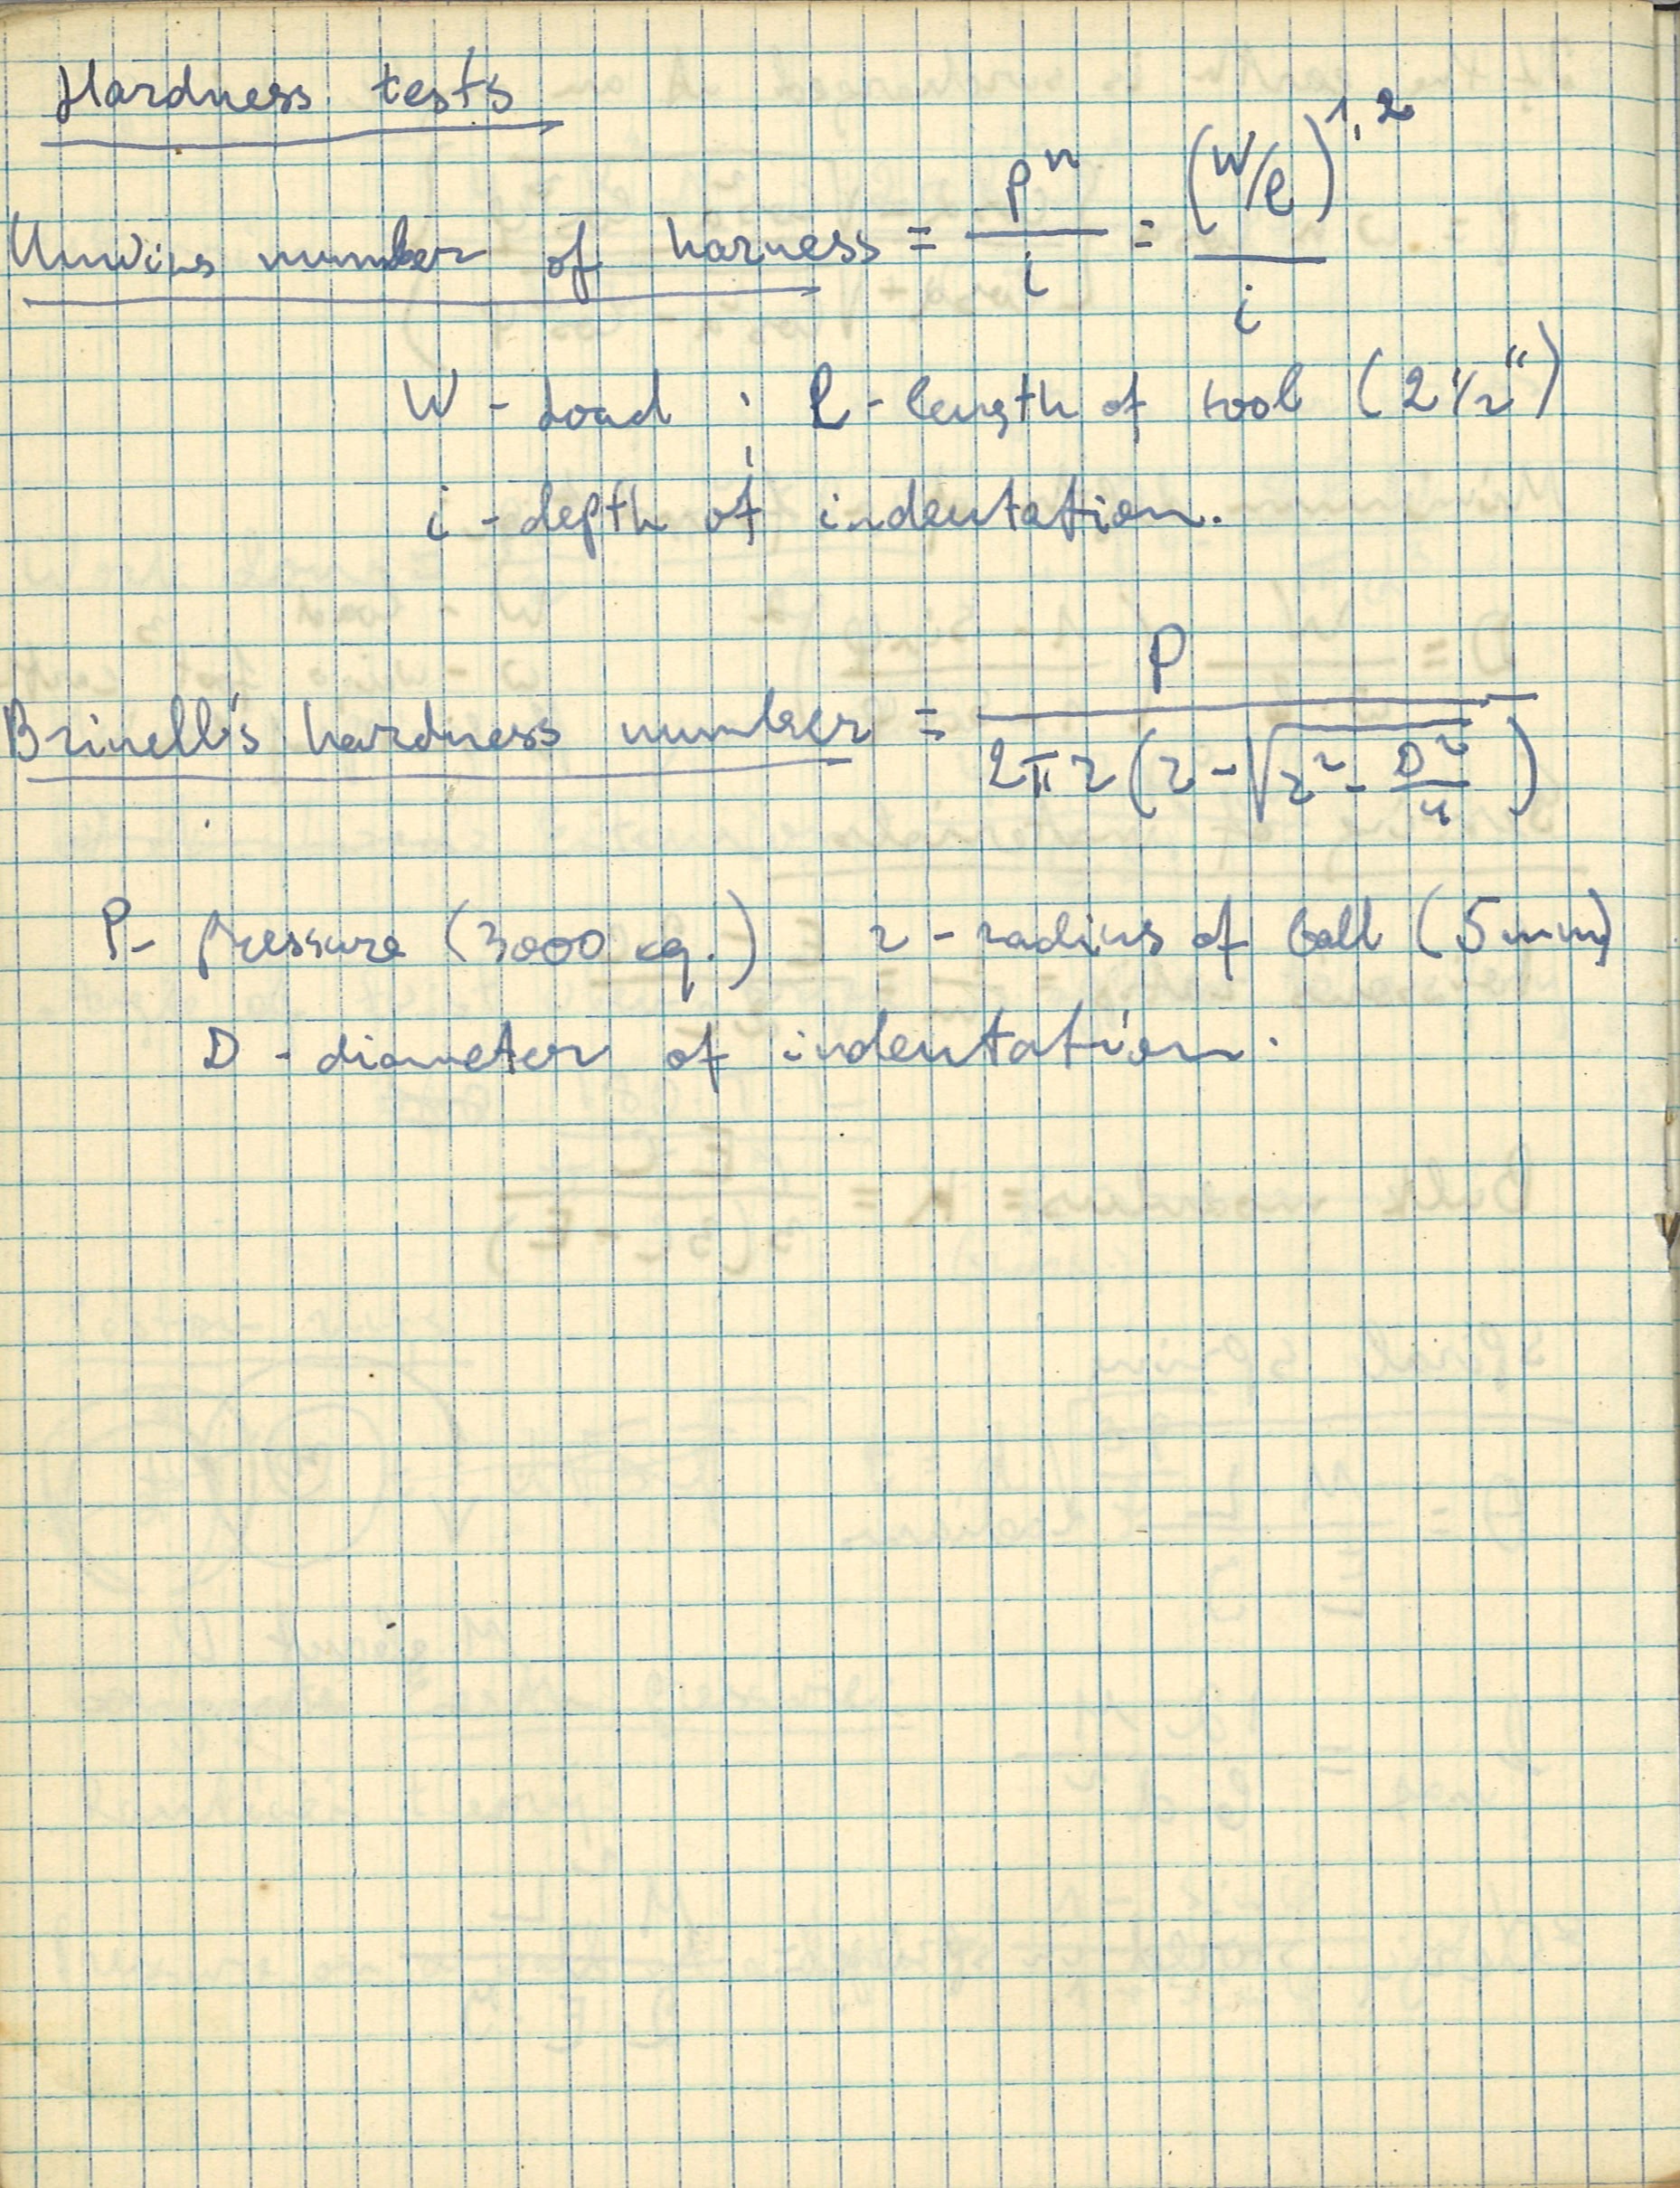 Hardness tests
Unwins number of harness = pⁿ/i = (W/l)^1,2/i
W - Load ; l - length of tool (2 1/2")
i - depth of indentation.
Brinell's hardness number = P/(2πr(r - √(r² - D²/4)))
P - Pressure (3000 kg.) r - radius of ball (5mm)
D - diameter of indentation.